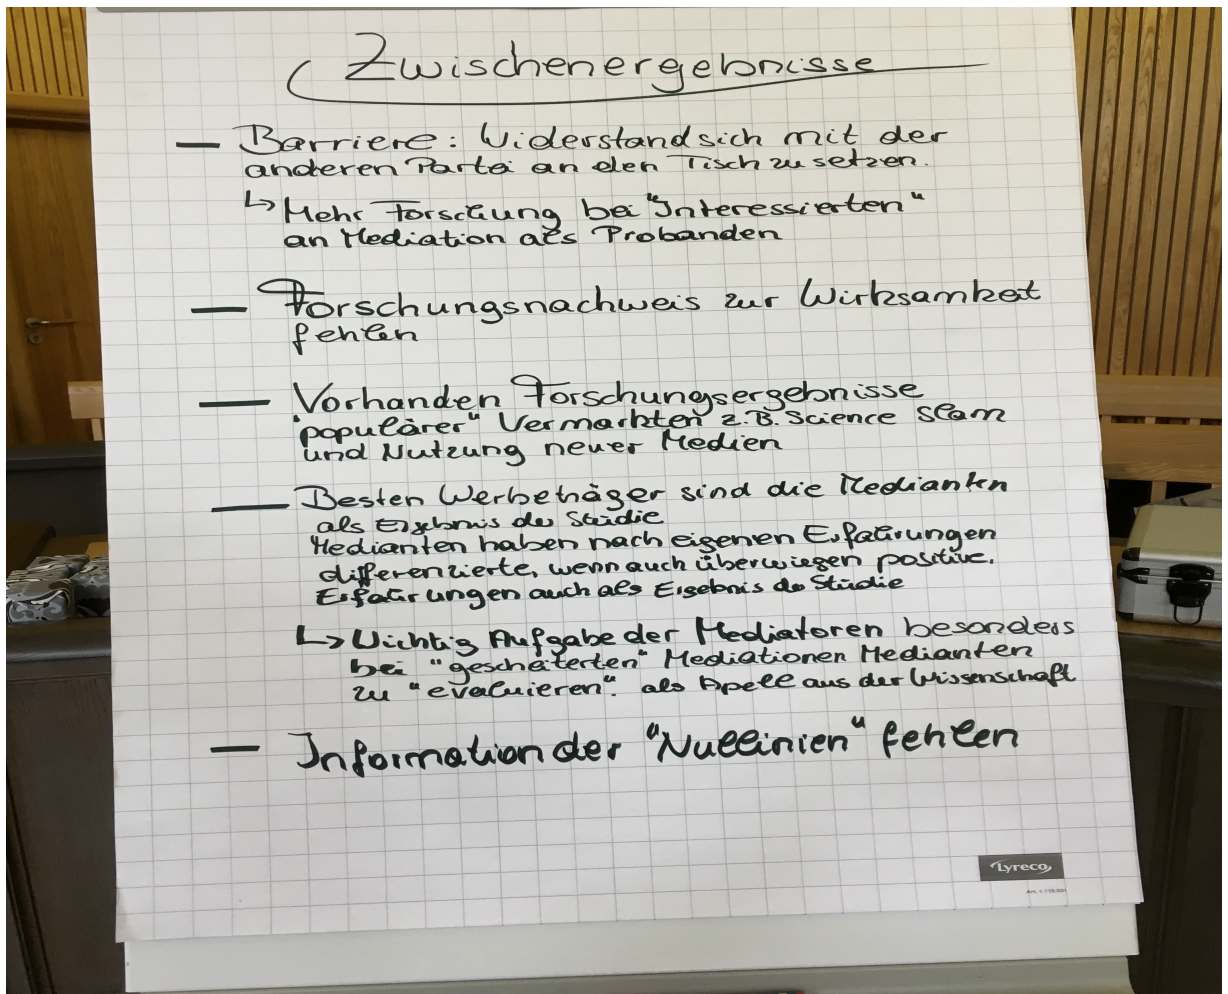 Zwischenergebnisse
— Barriere: Widerstand sich mit der
anderen Partei an den Tisch zu setzen.
↳ Mehr Forschung bei "Interessierten"
an Mediation als Probanden
— Forschungsnachweis zur Wirksamkeit
fehlen
— Vorhanden Forschungsergebnisse
"populärer" Vermarkten z.B. Science Slam
und Nutzung neuer Medien
— Besten Werbeträger sind die Medianten
als Ergebnis der Studie
Medianten haben nach eigenen Erfahrungen
differenzierte, wenn auch überwiegen positive.
Erfahrungen auch als Ergebnis de Studie
↳ Wichtig Aufgabe der Mediatoren besonders
bei "gescheiterten" Mediationen Medianten
zu "evaluieren". als Apell aus der Wissenschaft
— Information der "Nullinien" fehlen
Lyreco